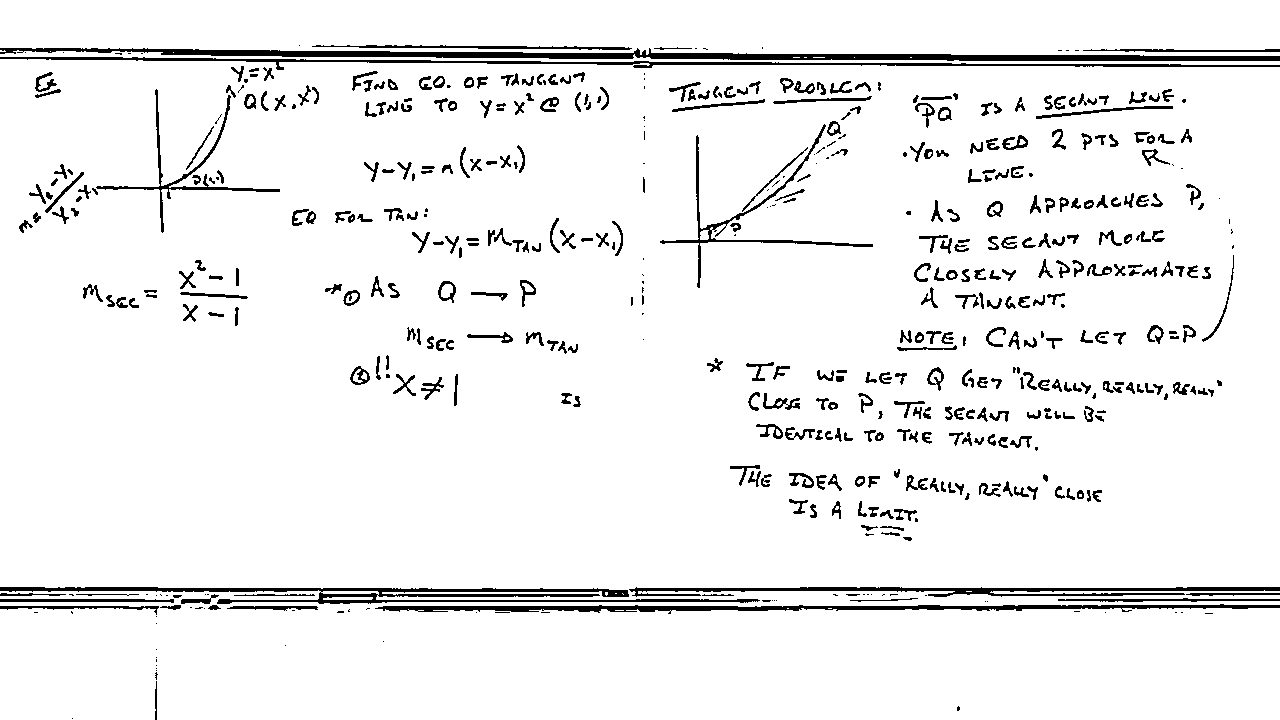 Ex
Y=X²
Q(X,X²)
P(1,1)
1
m=Y₂-Y₁/X₂-X₁
FIND EQ. OF TANGENT
LINE TO Y=X² @ (1,1)
Y-Y₁=m(X-X₁)
EQ FOR TAN:
Y-Y₁=m_TAN(X-X₁)
m_SEC = X²-1/X-1
*① AS Q → P
m_SEC → m_TAN
②!! X≠1
IS
TANGENT PROBLEM:
Q
P
"PQ" IS A SECANT LINE.
·YOU NEED 2 PTS FOR A
LINE.
· AS Q APPROACHES P,
THE SECANT MORE
CLOSELY APPROXIMATES
A TANGENT.
NOTE: CAN'T LET Q=P
* IF WE LET Q GET "REALLY, REALLY, REALLY"
CLOSE TO P, THE SECANT WILL BE
IDENTICAL TO THE TANGENT.
THE IDEA OF "REALLY, REALLY" CLOSE
IS A LIMIT.